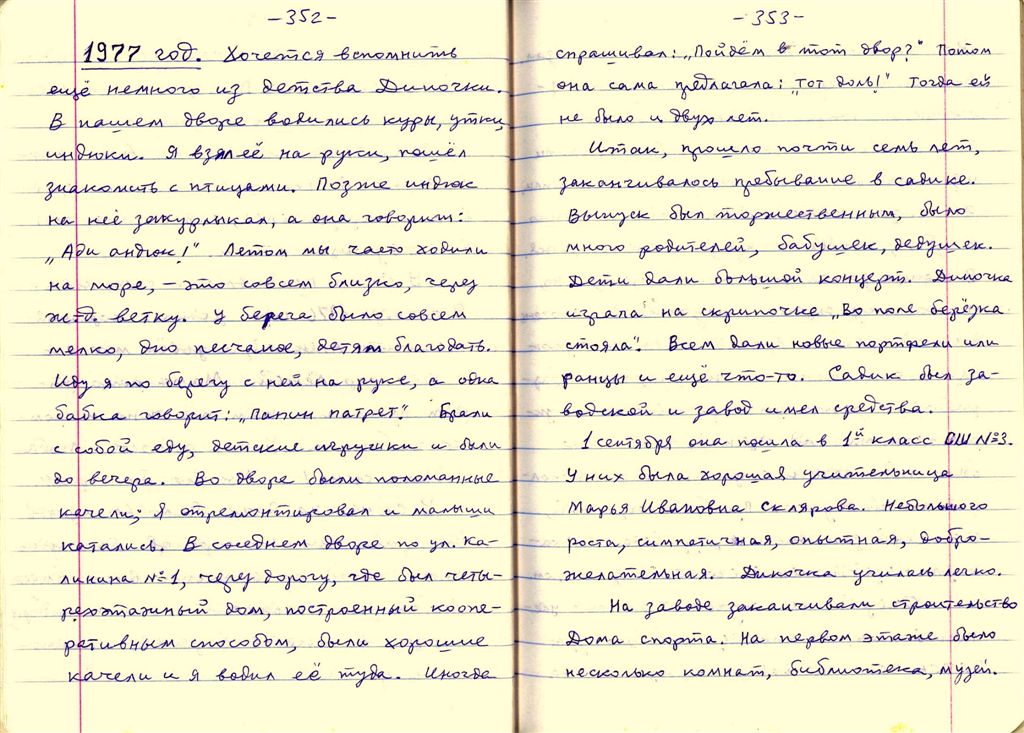 -352-
1977 год. Хочется вспомнить
ещё немного из детства Диночки.
В нашем дворе водились куры, утки,
индюки. Я взял её на руки, пошёл
знакомить с птицами. Позже индюк
на неё закурлыкал, а она говорит:
„Ади андюк!" Летом мы часто ходили
на море, – это совсем близко, через
ж.д. ветку. У берега было совсем
мелко, дно песчаное, детям благодать.
Иду я по берегу с ней на руке, а одна
бабка говорит: „Папин патрет." Брали
с собой еду, детские игрушки и были
до вечера. Во дворе были поломанные
качели; я отремонтировал и малыши
катались. В соседнем дворе по ул. Ка-
линина №1, через дорогу, где был четы-
рехэтажный дом, построенный коопе-
ративным способом, были хорошие
качели и я водил её туда. Иногда
-353-
спрашивал: „Пойдём в тот двор?" Потом
она сама предлагала: „Тот доль!" Тогда ей
не было и двух лет.
Итак, прошло почти семь лет,
заканчивалось пребывание в садике.
Выпуск был торжественным, было
много родителей, бабушек, дедушек.
Дети дали большой концерт. Диночка
играла на скрипочке „Во поле берёзка
стояла". Всем дали новые портфели или
ранцы и ещё что-то. Садик был за-
водской и завод имел средства.
1 сентября она пошла в 1й класс СШ №3.
У них была хорошая учительница
Марья Ивановна Склярова. Небольшого
роста, симпатичная, опытная, добро-
желательная. Диночка училась легко.
На заводе заканчивали строительство
Дома спорта. На первом этаже было
несколько комнат, библиотека, музей.